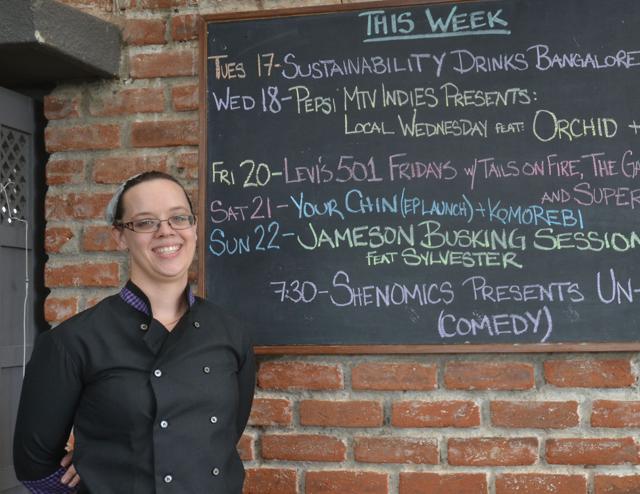 THIS WEEK
TUES 17-SUSTAINABILITY DRINKS BANGALORE
WED 18-PEPSI MTV INDIES PRESENTS:
LOCAL WEDNESDAY FEAT: ORCHID +
FRI 20-LEVI'S 501 FRIDAYS W/TAILS ON FIRE, THE GA
AND SUPER
SAT 21-YOUR CHIN (EP LAUNCH) + KOMOREBI
SUN 22-JAMESON BUSKING SESSION
FEAT SYLVESTER
7:30-SHENOMICS PRESENTS UN-
(COMEDY)